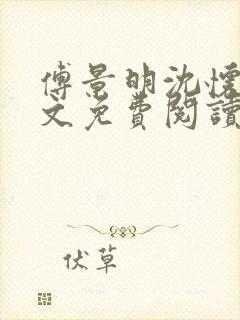 傅景明沈懷
文免費閱讀
伏草